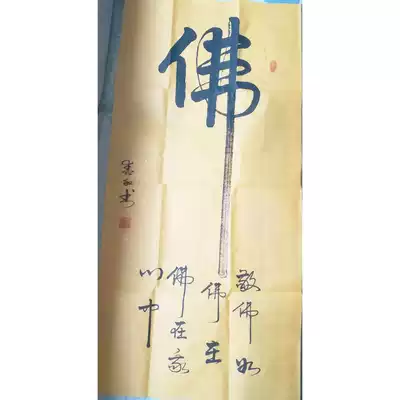 佛
敬佛如
佛在
佛在我
心中